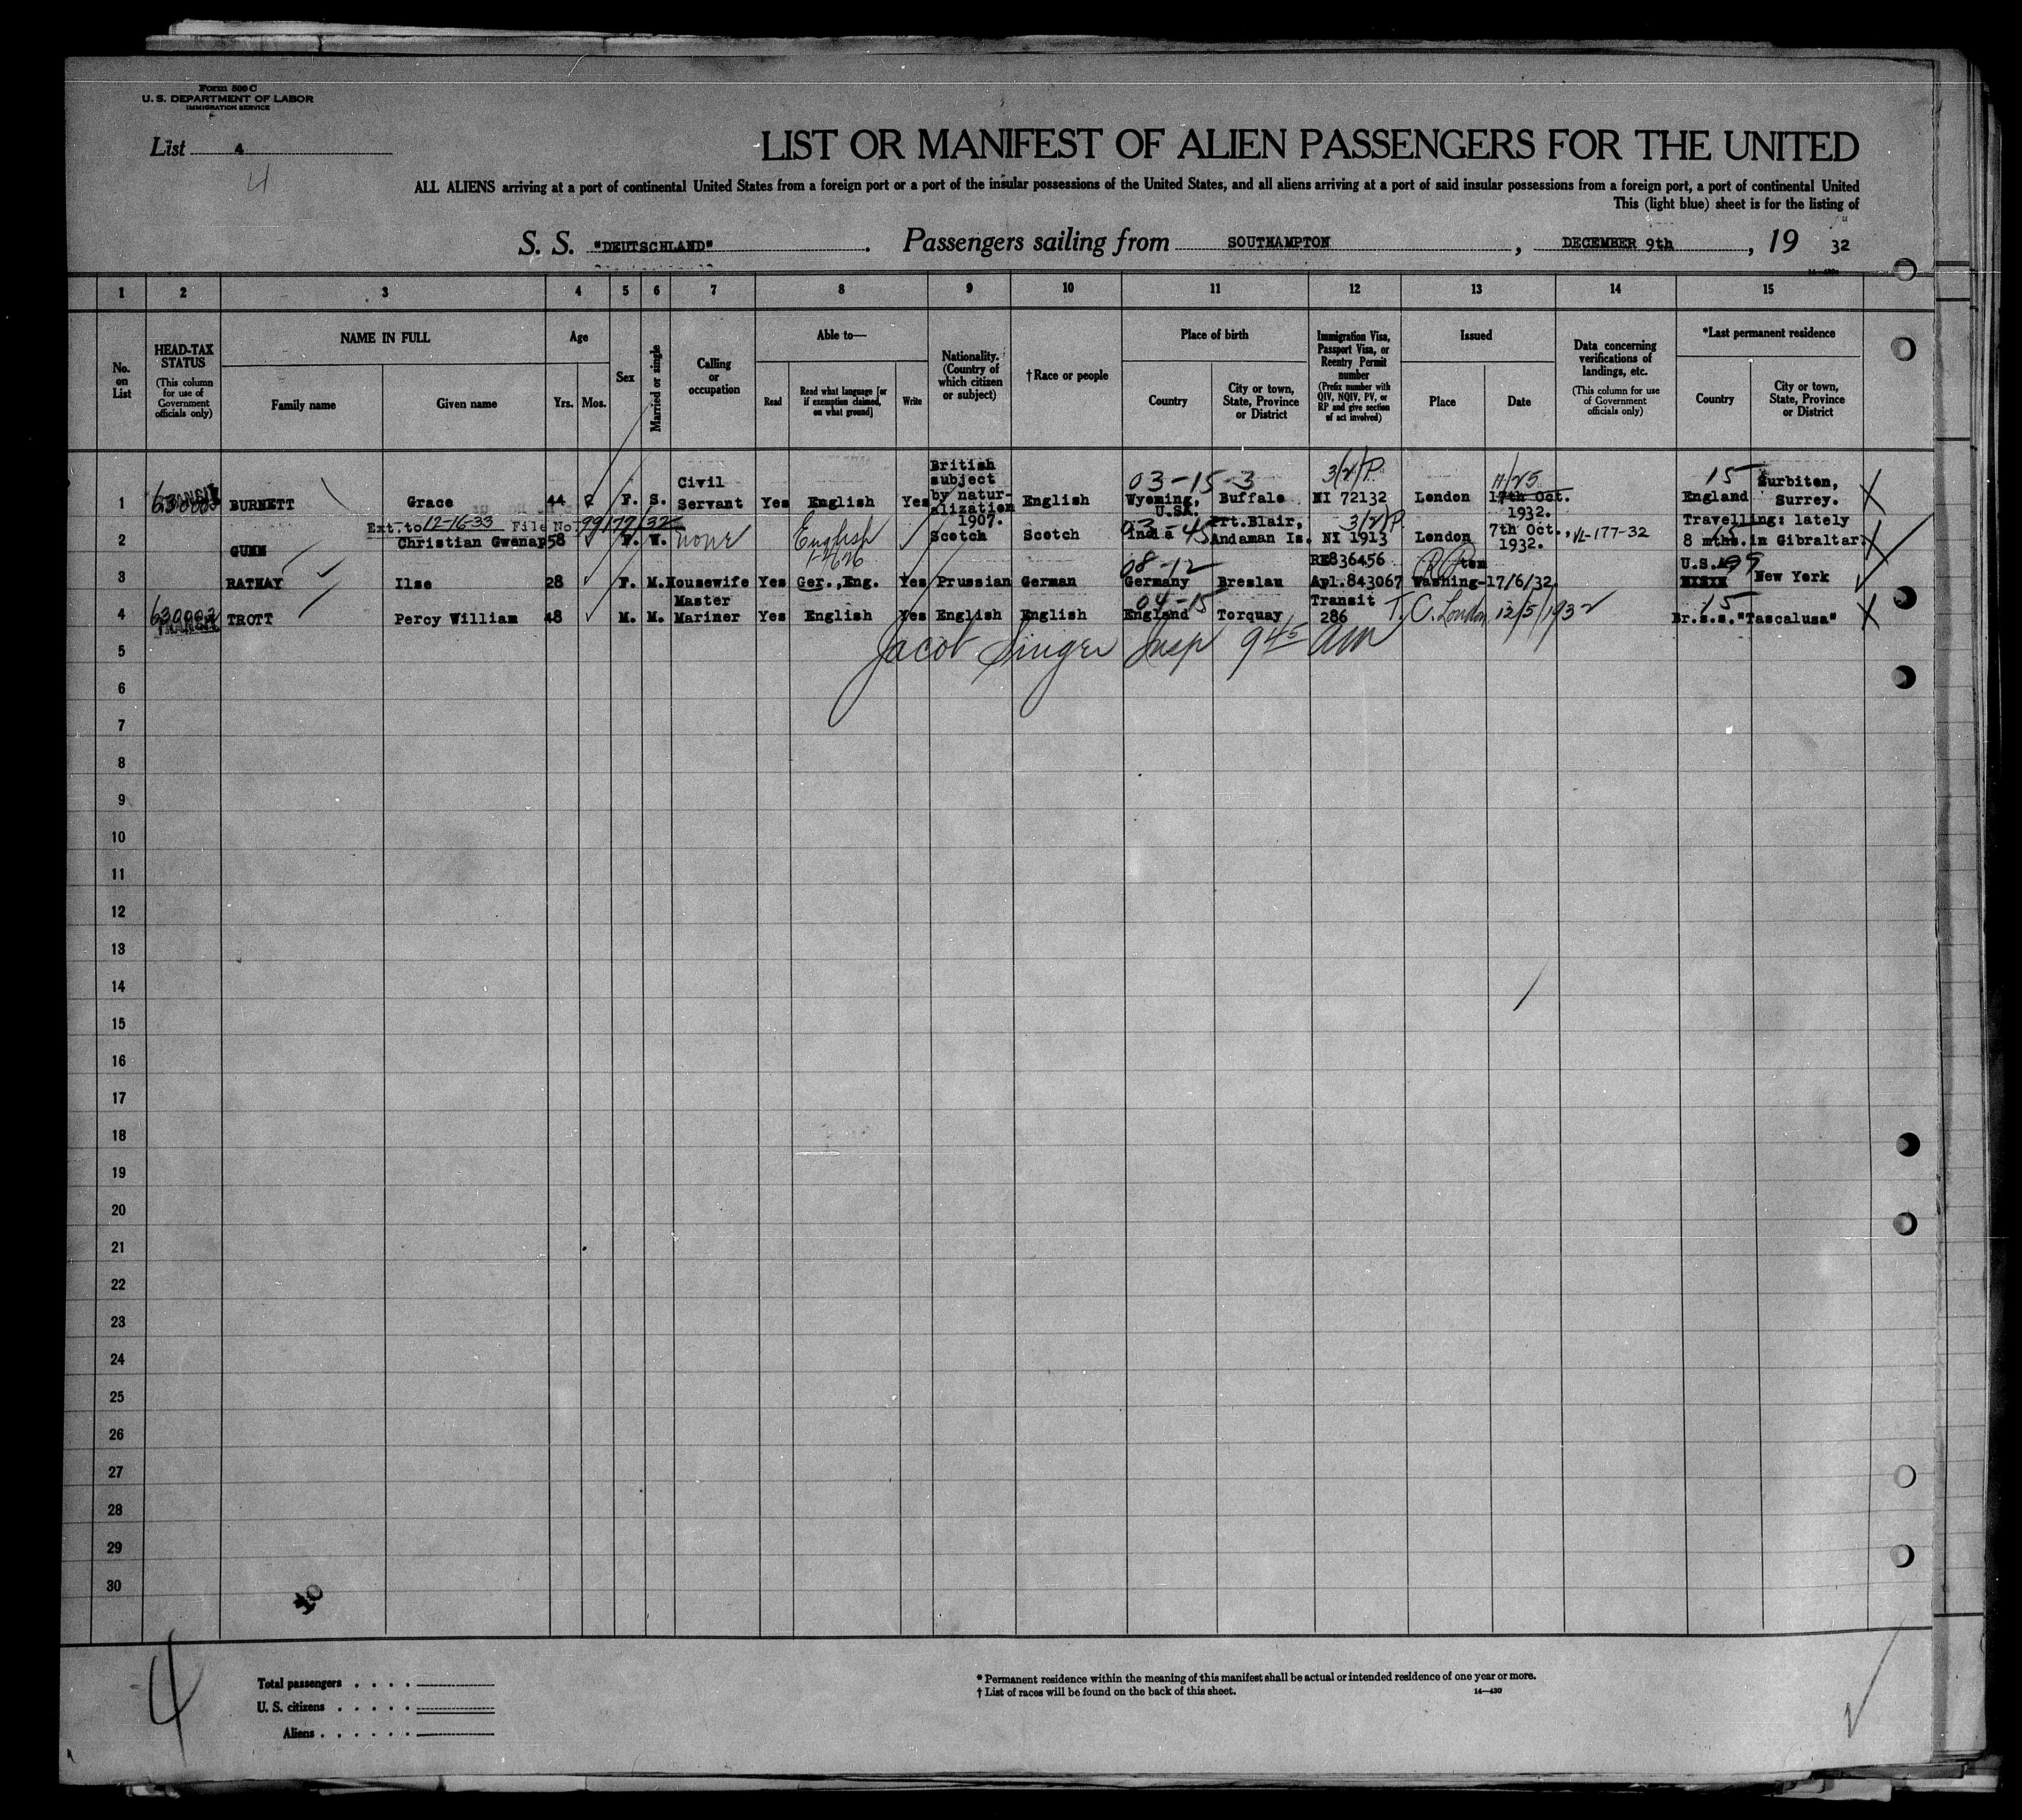 Form 500 C
U. S. DEPARTMENT OF LABOR
IMMIGRATION SERVICE
List 4
4
LIST OR MANIFEST OF ALIEN PASSENGERS FOR THE UNITED
ALL ALIENS arriving at a port of continental United States from a foreign port or a port of the insular possessions of the United States, and all aliens arriving at a port of said insular possessions from a foreign port, a port of continental United
This (light blue) sheet is for the listing of
S. S. "DEUTSCHLAND". Passengers sailing from SOUTHAMPTON, DECEMBER 9th, 19 32
1 2 3 4 5 6 7 8 9 10 11 12 13 14 15
No. on List
HEAD-TAX STATUS (This column for use of Government officials only)
NAME IN FULL
Family name Given name
Age
Yrs. Mos.
Sex
Married or single
Calling or occupation
Able to—
Read Read what language [or if exemption claimed, on what ground] Write
Nationality. (Country of which citizen or subject)
†Race or people
Place of birth
Country City or town, State, Province or District
Immigration Visa, Passport Visa, or Reentry Permit number (Prefix number with QIV, NQIV, PV, or RP and give section of act involved)
Issued
Place Date
Data concerning verifications of landings, etc. (This column for use of Government officials only)
*Last permanent residence
Country City or town, State, Province or District
03-15-3 3/2/P. 11/25 15
1 630003 TRANSIT BURNETT Grace 44 2 F. S. Civil Servant Yes English Yes British subject by naturalization 1907. English Wyoming, U.S.A. Buffalo NI 72132 London 17th Oct. 1932. England Surbiton, Surrey.
Ext. to 12-16-33 File No. 99177/32
03-45 3/2/P
2 GUNN Christian Gwenap 58 F. W. none English Scotch Scotch India Prt.Blair, Andaman Is. NI 1913 London 7th Oct., 1932. VL-177-32 Travelling: lately 8 mths.in Gibraltar.
08-12 99
3 RATHAY Ilse 28 F. M. Housewife Yes Ger.,Eng. Yes Prussian German Germany Breslau RE836456 Apl.843067 Washing-ton 17/6/32. U.S.A. New York
04-15 15
4 630003 TRANSIT TROTT Percy William 48 M. M. Master Mariner Yes English Yes English English England Torquay Transit 286 T.C. London 12/5/1932 Br.s.s."Tascalusa"
5 Jacob Singer Insp 9 45 am
6
7
8
9
10
11
12
13
14
15
16
17
18
19
20
21
22
23
24
25
26
27
28
29
30
10
4
Total passengers . . . .
U. S. citizens . . . . .
Aliens . . . . . .
* Permanent residence within the meaning of this manifest shall be actual or intended residence of one year or more.
† List of races will be found on the back of this sheet. 14—430